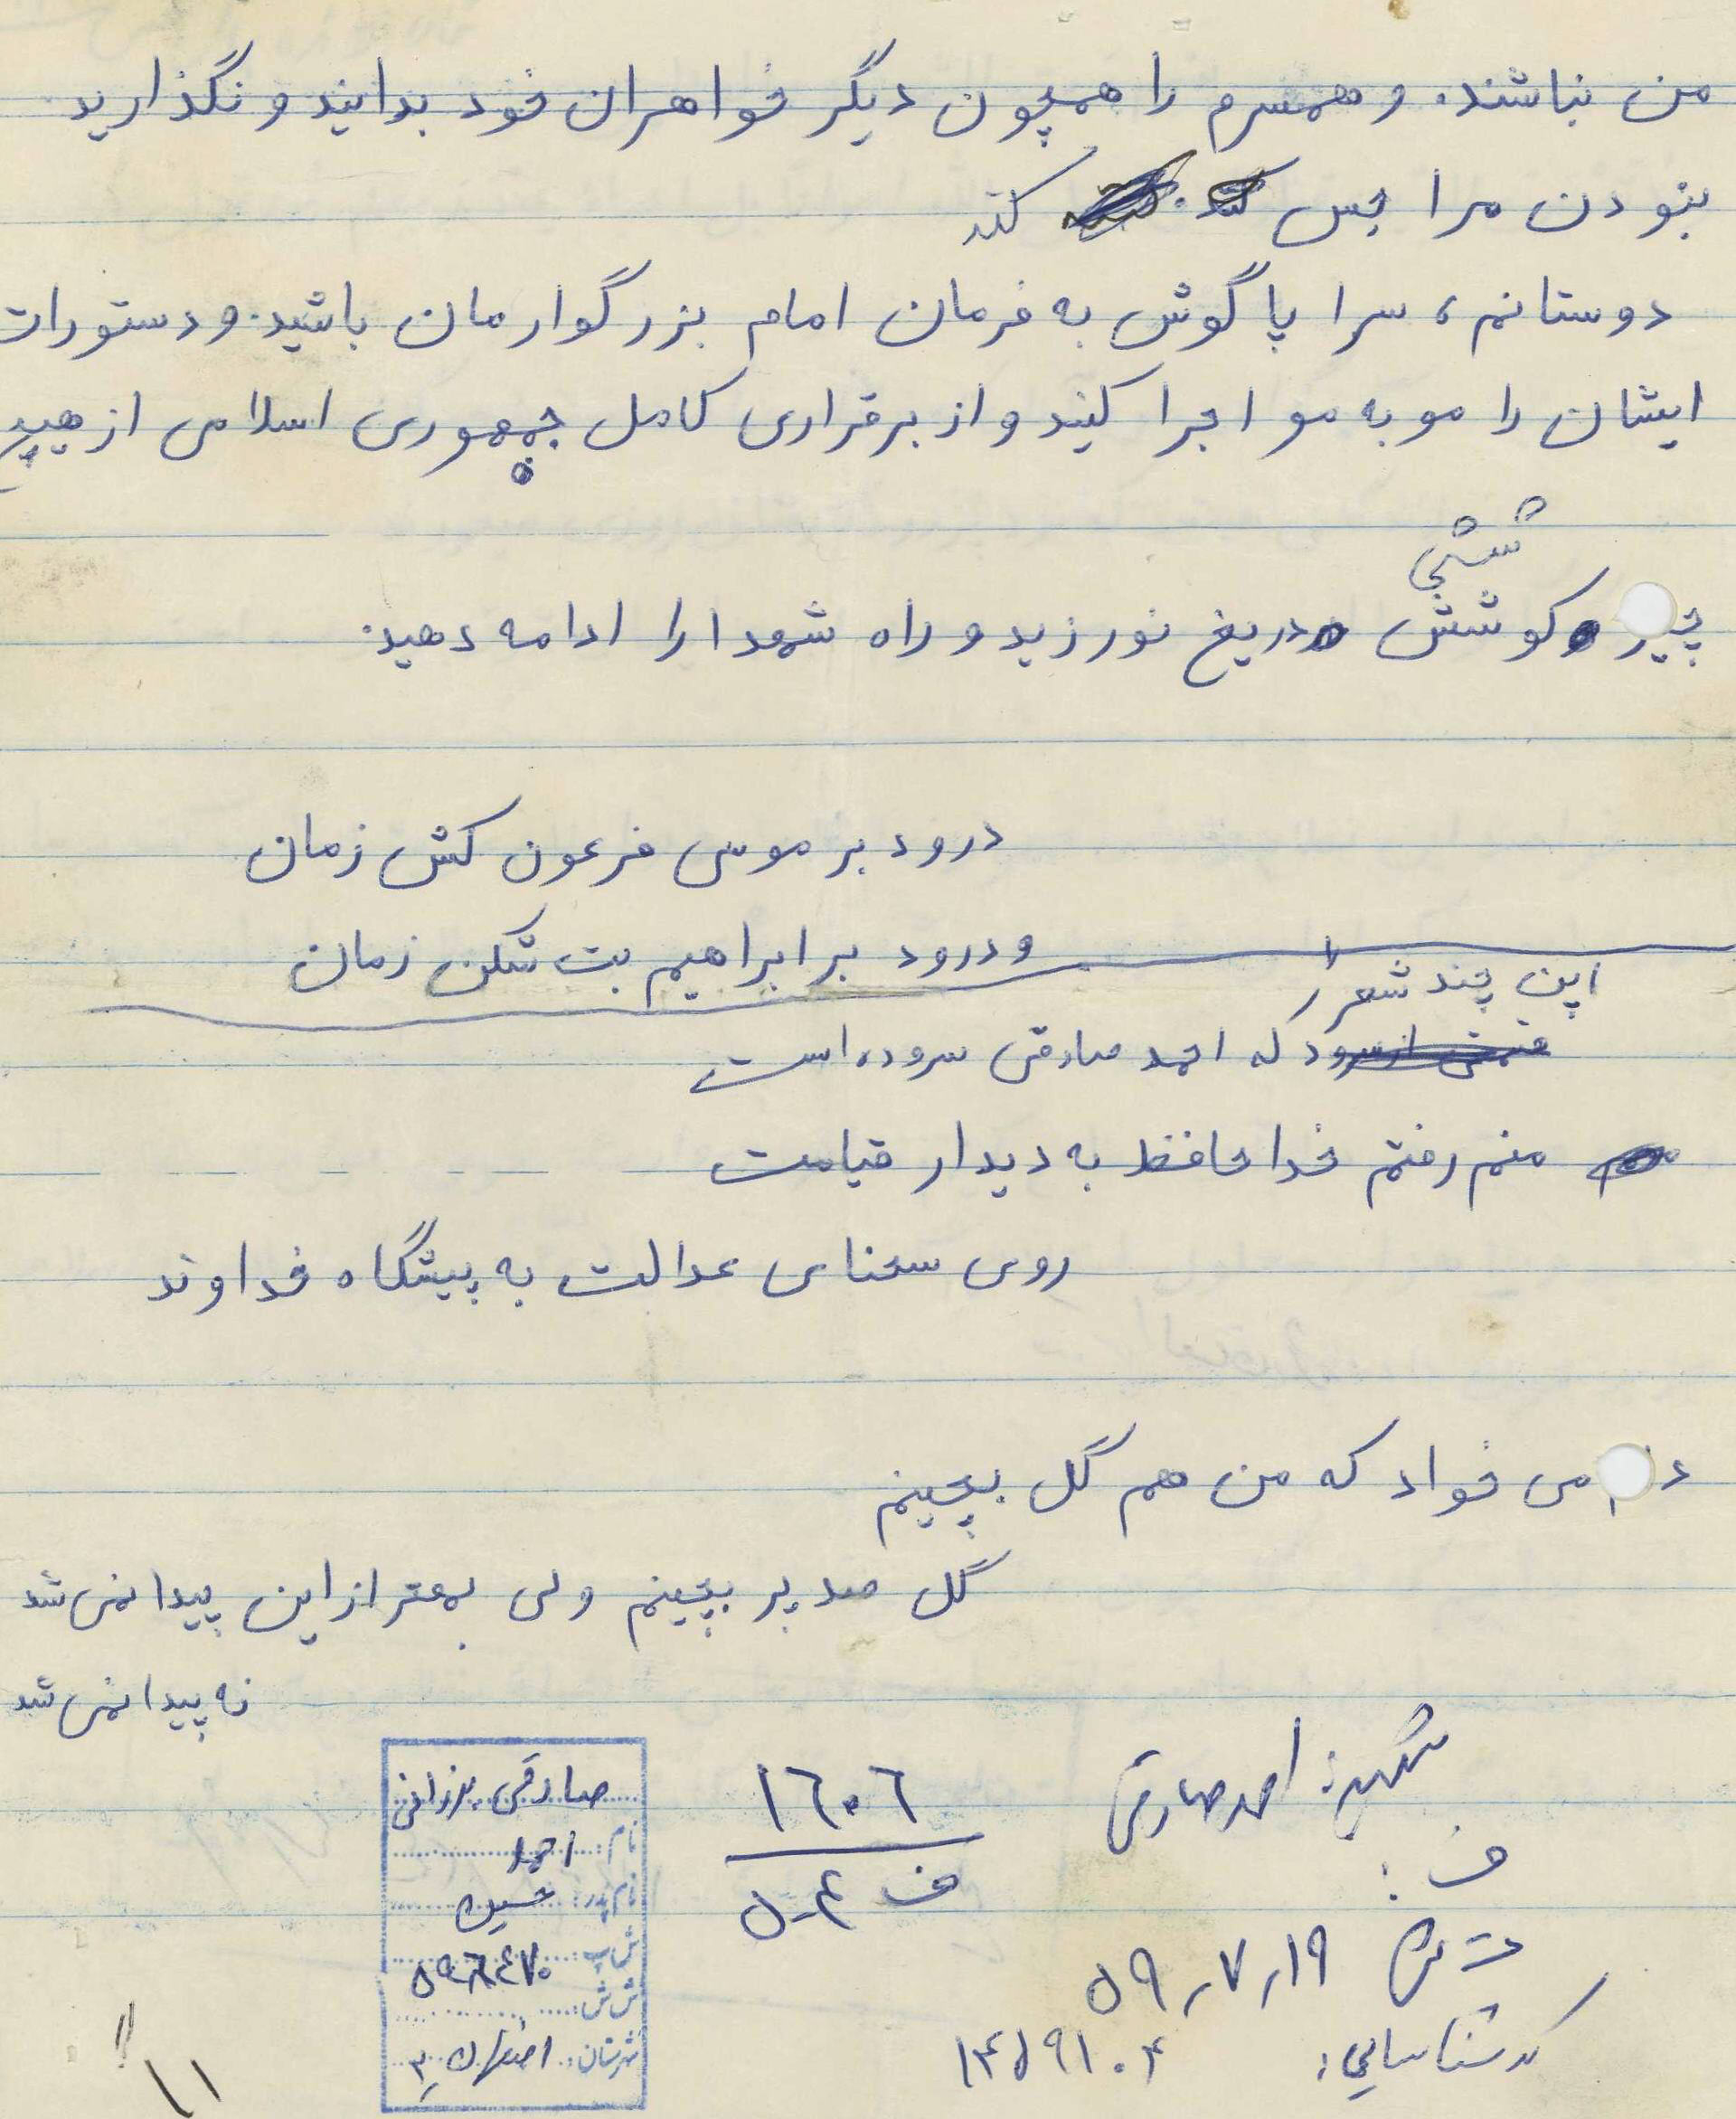 من نباشند. و همسرم را همچون دیگر خواهران خود بدانید و نگذارید
نبودن مرا حس کند
دوستانم، سرا پا گوش به فرمان امام بزرگوارمان باشید. و دستورات
ایشان را مو به مو اجرا کنید و از برقراری کامل جمهوری اسلامی از هیچ
کوشش دریغ نورزید و راه شهدا را ادامه دهید.
درود بر موسی فرعون کش زمان
و درود بر ابراهیم بت شکن زمان
این چند شعر را
که احمد صادقی سروده است
منم رفتم خدا حافظ به دیدار قیامت
روی سخنای عدالت به پیشگاه خداوند
دلم می خواد که من هم گل بچینم
گل صد پر بچینم ولی بهتر از این پیدا نمی شد
نه پیدا نمی شد
شهید: احمد صادقی
ف:
ت ش ۵۹,۷,۱۹
کد شناسایی: ۱۴۵۹۱۰۴
۱۶۰۶
ف ۴-۵
صادقی
نام: احمد
نام پدر: حسین
ش پ:
ش ش:
شهرستان: اصفهان ۳
۱۱